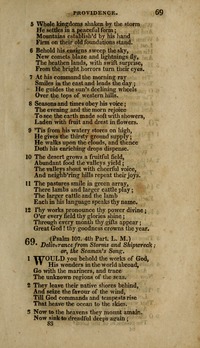 PROVIDENCE. 69
5 Whole kingdoms shaken by the storm
He settles in a peaceful form;
Mountains establish'd by his hand
Firm on their old foundations stand.
6 Behold his ensigns sweep the sky,
New comets blaze and lightnings fly,
The heathen lands, with swift surprise,
From the bright horrors turn their eyes.
7 At his command the morning ray
Smiles in the east and leads the day;
He guides the sun's declining wheels
Over the tops of western hills.
8 Seasons and times obey his voice;
The evening and the morn rejoice
To see the earth made soft with showers,
Laden with fruit and drest in flowers.
9 'Tis from his watery stores on high,
He gives the thirsty ground supply;
He walks upon the clouds, and thence
Doth his enriching drops dispense.
10 The desert grows a fruitful field,
Abundant food the valleys yield;
The valleys shout with cheerful voice,
And neighb'ring hills repeat their joys.
11 The pastures smile in green array,
There lambs and larger cattle play;
The larger cattle and the lamb
Each in his language speaks thy name.
12 Thy works pronounce thy power divine;
O'er every field thy glories shine;
Through every month thy gifts appear;
Great God! thy goodness crowns the year.
69. (Psalm 107. 4th Part. L. M.)
Deliverance from Storms and Shipwreck;
or, the Seaman's Song.
1 WOULD you behold the works of God,
His wonders in the world abroad,
Go with the mariners, and trace
The unknown regions of the seas.
2 They leave their native shores behind,
And seize the favour of the wind,
Till God commands and tempests rise
That heave the ocean to the skies.
3 Now to the heavens they mount amain,
Now sink to dreadful deeps again;
83